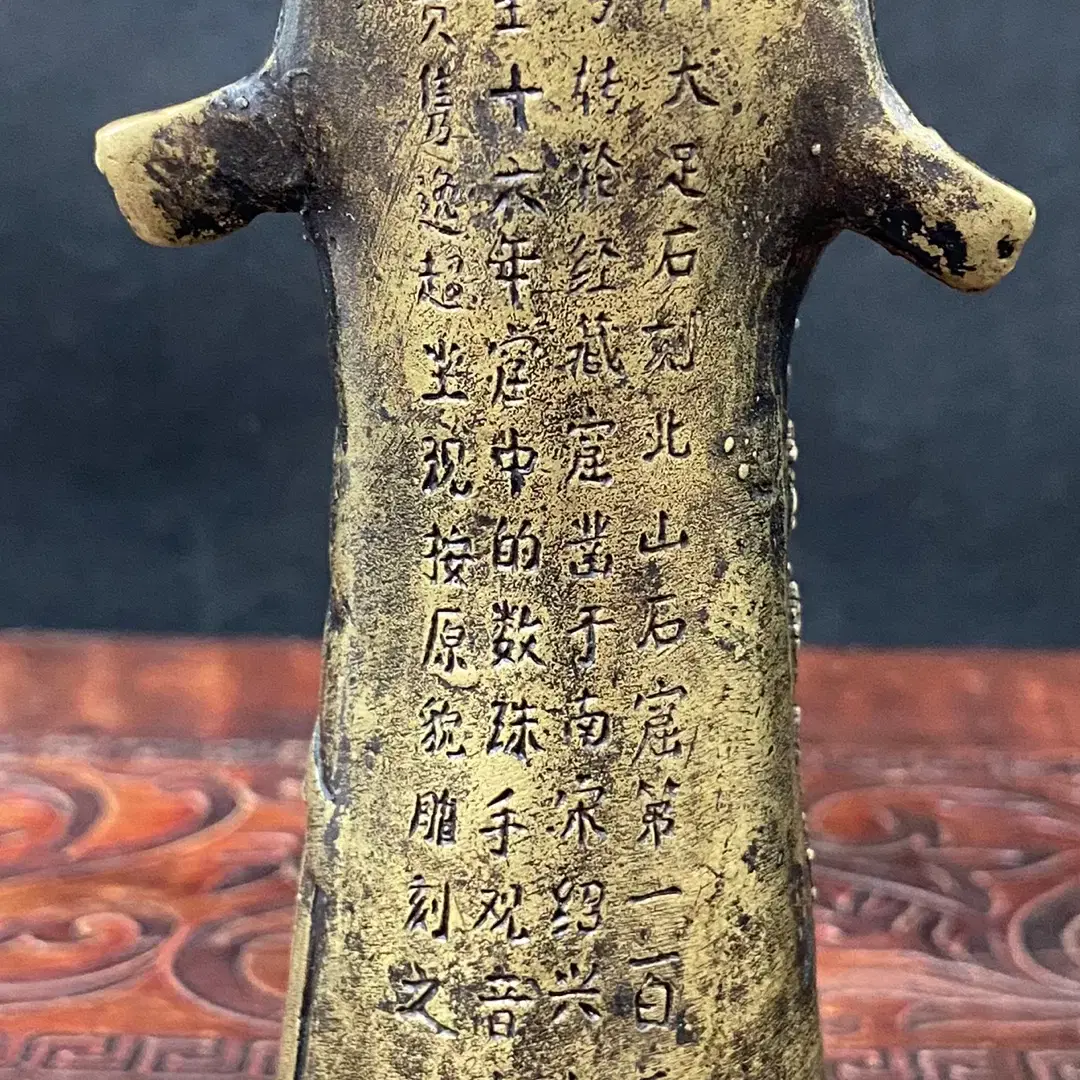 大足石刻北山石窟第一百
转轮经藏窟凿于南宋绍兴
至十六年窟中的数珠手观音
隽逸超坐现按原貌雕刻之